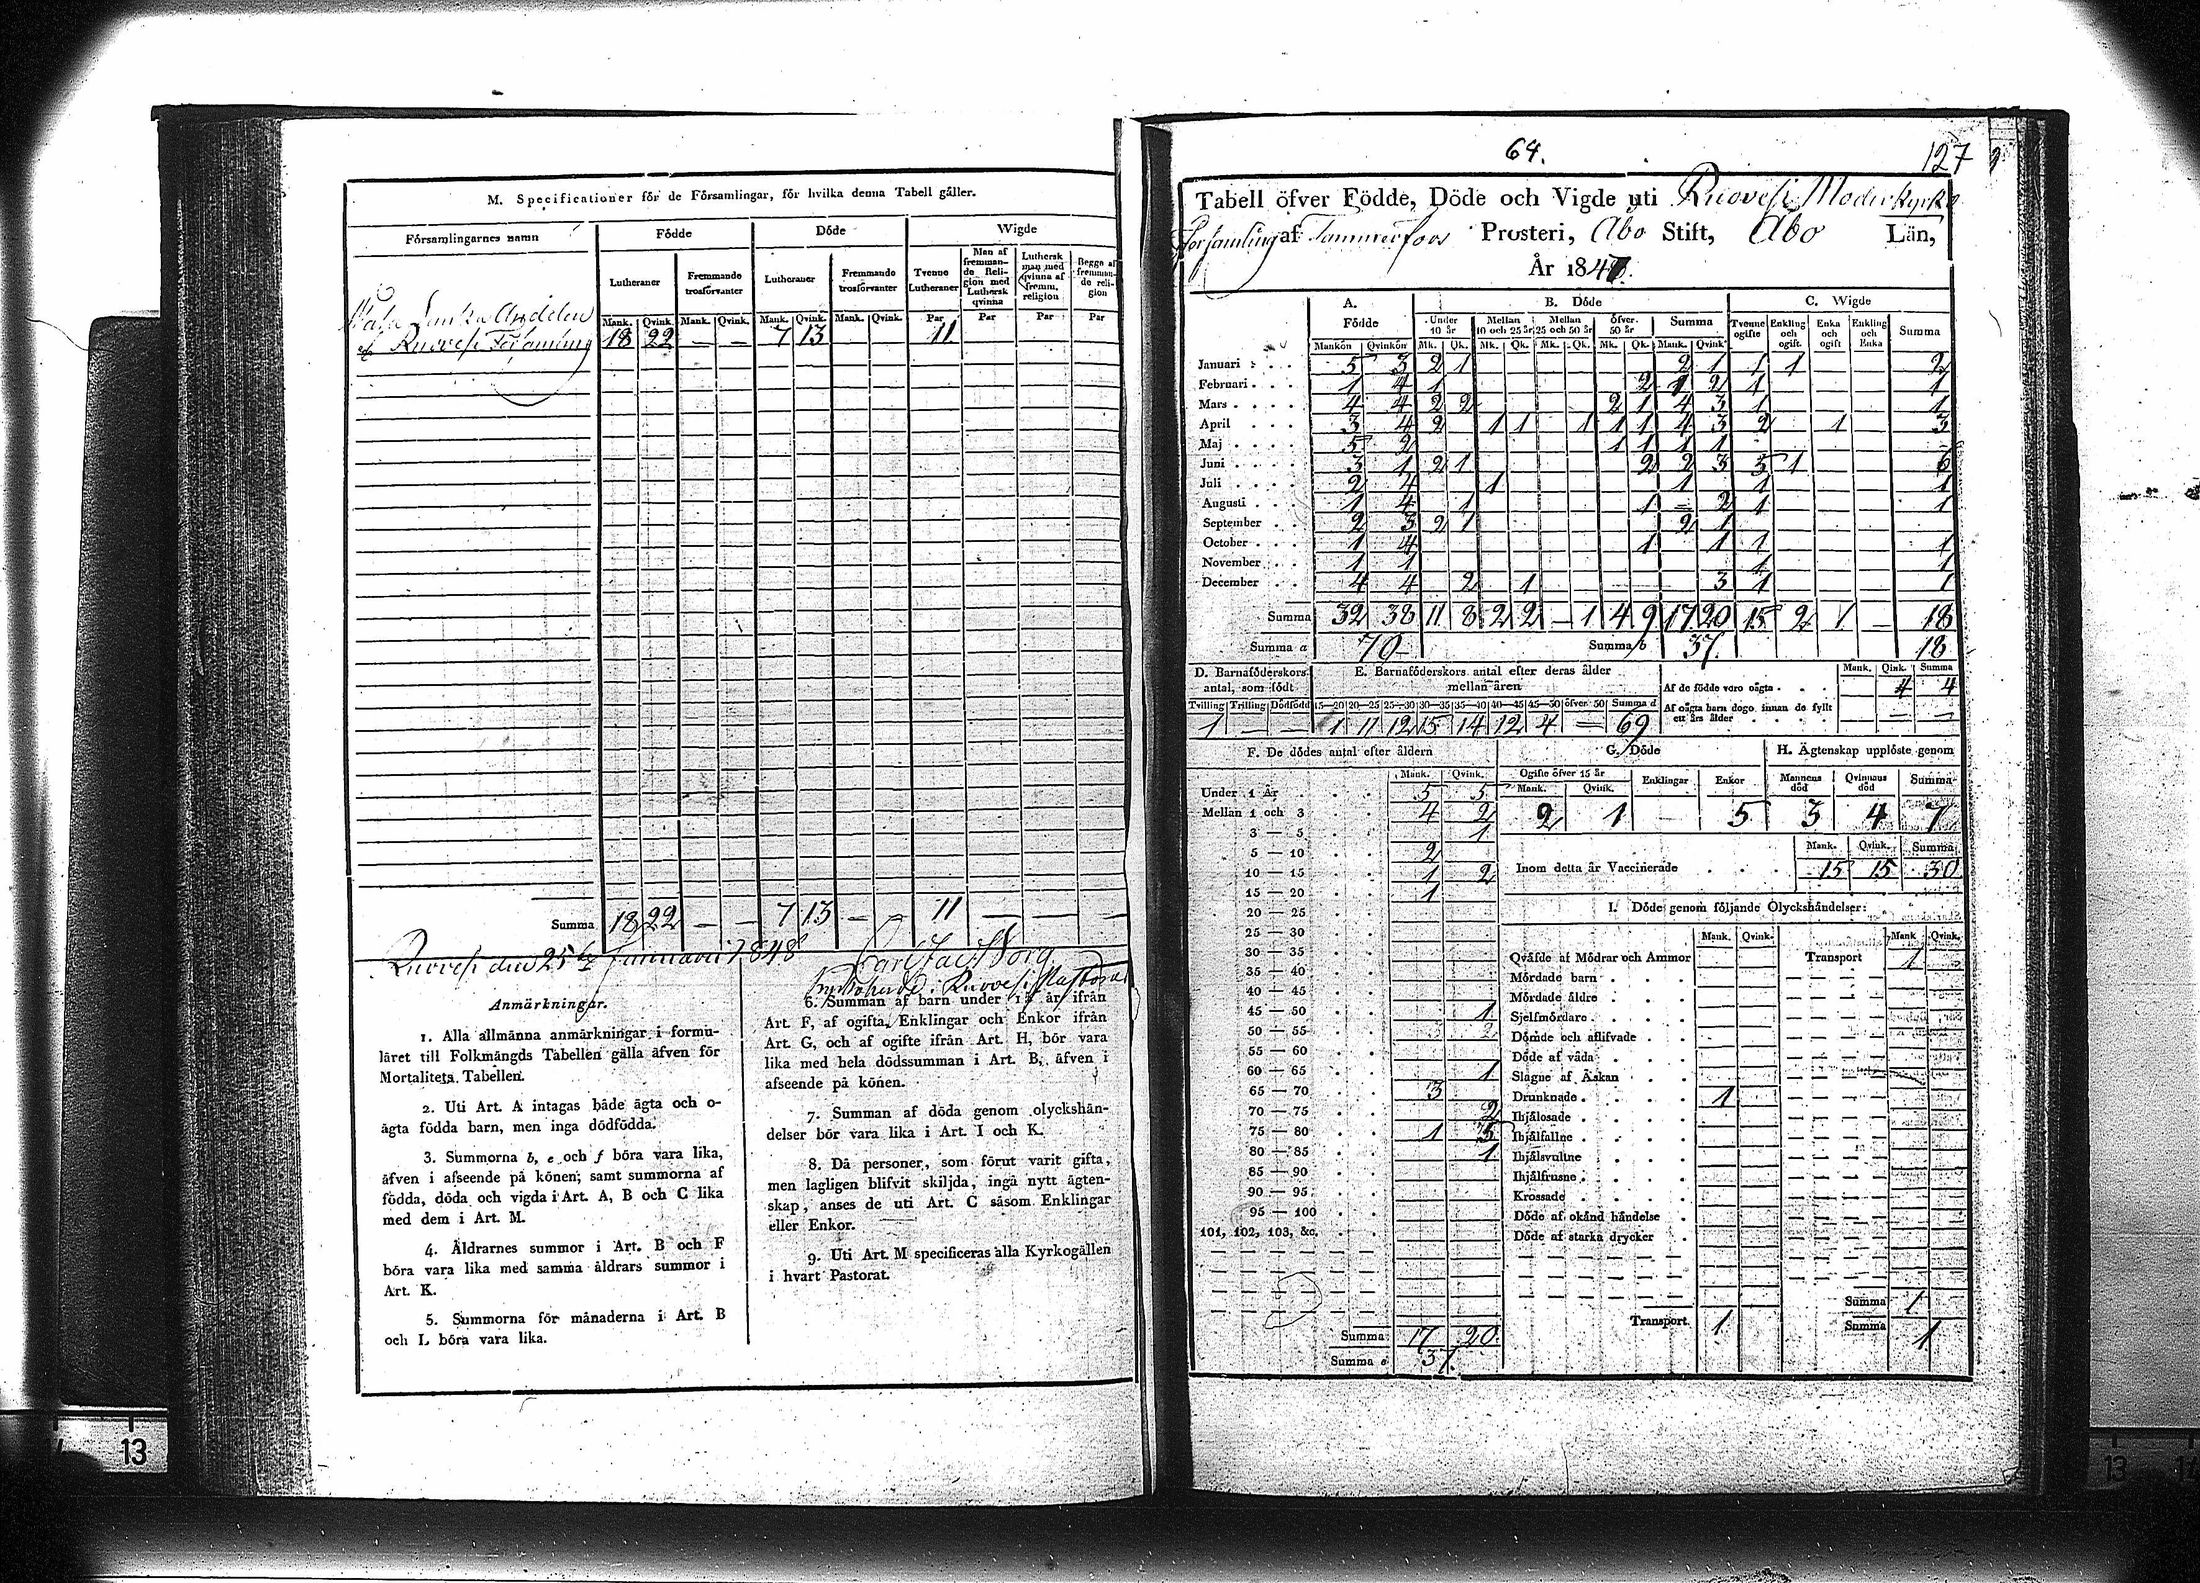 M. Specificationer för de Församlingar, för hvilka denna Tabell gäller.
Församlingarnes namn Födde Döde Wigde
Lutheraner Fremmande trosförvanter Lutheraner Fremmande trosförvanter Tvenne Lutheraner Man af fremmande Religion med Luthersk qvinna Luthersk man med qvinna af fremm. religion Begge af fremmande religion
Mank. Qvink. Mank. Qvink. Mank. Qvink. Mank. Qvink. Par Par Par Par
Andelen
af Ruovesi Församling 18 22 — — 7 13 11
Summa 18 22 — — 7 13 — — 11 — — —
Ruovesi den 25 Januari 1848
Anmärkningar.
1. Alla allmänna anmärkningar i formu-
läret till Folkmängds Tabellen gälla äfven för
Mortalitets Tabellen.
2. Uti Art. A intagas både ägta och o-
ägta födda barn, men inga dödfödda.
3. Summorna b, e och f böra vara lika,
äfven i afseende på könen; samt summorna af
födda, döda och vigda i Art. A, B och C lika
med dem i Art. M.
4. Åldrarnes summor i Art. B och F
böra vara lika med samma åldrars summor i
Art. K.
5. Summorna för månaderna i Art. B
och L böra vara lika.
6. Summan af barn under 15 år ifrån
Art. F, af ogifta, Enklingar och Enkor ifrån
Art. G, och af ogifte ifrån Art. H, bör vara
lika med hela dödssumman i Art. B, äfven i
afseende på könen.
7. Summan af döda genom olyckshän-
delser bör vara lika i Art. I och K.
8. Då personer, som förut varit gifta,
men lagligen blifvit skiljda, ingå nytt ägten-
skap, anses de uti Art. C såsom Enklingar
eller Enkor.
9. Uti Art. M specificeras alla Kyrkogällen
i hvart Pastorat.
64.
127
Tabell öfver Födde, Döde och Vigde uti Ruovesi Moderkyrko
Församling af Tammerfors Prosteri, Åbo Stift, Åbo Län,
År 1847.
A. Födde B. Döde C. Wigde
Under 10 år Mellan 10 och 25 år Mellan 25 och 50 år öfver 50 år Summa Tvenne ogifte Enkling och ogift Enka och ogift Enkling och Enka Summa
Mankön Qvinkön Mk. Qk. Mk. Qk. Mk. Qk. Mk. Qk. Mank. Qvink.
Januari 5 3 2 1 2 1 1 1 2
Februari 1 4 1 2 1 2 1 1
Mars 4 4 2 2 2 1 4 3 1 1
April 3 4 2 1 1 1 1 1 4 3 2 1 3
Maj 5 2 1 1 1 1
Juni 3 1 2 1 2 2 3 5 1 6
Juli 2 4 1 1 1 1
Augusti 1 4 1 1 — 2 1 1
September 2 3 2 1 2 1
October 1 4 1 1 1 1
November 1 1 1 1
December 4 4 2 1 3 1 1
Summa 32 38 11 8 2 2 — 1 4 9 17 20 15 2 1 — 18
Summa a 70 Summa b 37. 18
D. Barnaföderskors antal, som födt
Tvilling Trilling Dödfödd
1 — —
E. Barnaföderskors antal efter deras ålder mellan åren
15—20 20—25 25—30 30—35 35—40 40—45 45—50 öfver 50 Summa d
1 11 12 15 14 12 4 — 69
Mank. Qink. Summa
Af de födde voro oägta 4 4
Af oägta barn dogo innan de fyllt ett års ålder — —
F. De dödes antal efter åldern
Mank. Qvink.
Under 1 År 5 5
Mellan 1 och 3 4 2
3 — 5 1
5 — 10 2
10 — 15 1 2
15 — 20 1
20 — 25
25 — 30
30 — 35
35 — 40
40 — 45
45 — 50 1
50 — 55 2
55 — 60
60 — 65 1
65 — 70 3
70 — 75 2
75 — 80 1
80 — 85 1
85 — 90
90 — 95
95 — 100
101, 102, 103, &c.
Summa 17 20
Summa e 37.
G. Döde
Ogifte öfver 15 år Enklingar Enkor
Mank. Qvink.
2 1 — 5
H. Ägtenskap upplöste genom
Mannens död Qvinnans död Summa
3 4 7
Mank. Qvink. Summa
Inom detta år Vaccinerade 15 15 30
I. Döde genom följande Olyckshändelser:
Mank. Qvink. Mank Qvink.
Qväfde af Mödrar och Ammor Transport 1
Mördade barn
Mördade äldre
Sjelfmördare
Dömde och aflifvade
Döde af våda
Slagne af Åskan
Drunknade 1
Ihjälosade
Ihjälfallne
Ihjälsvultne
Ihjälfrusne
Krossade
Döde af okänd händelse
Döde af starka drycker
Summa 1
Transport 1 Summa 1